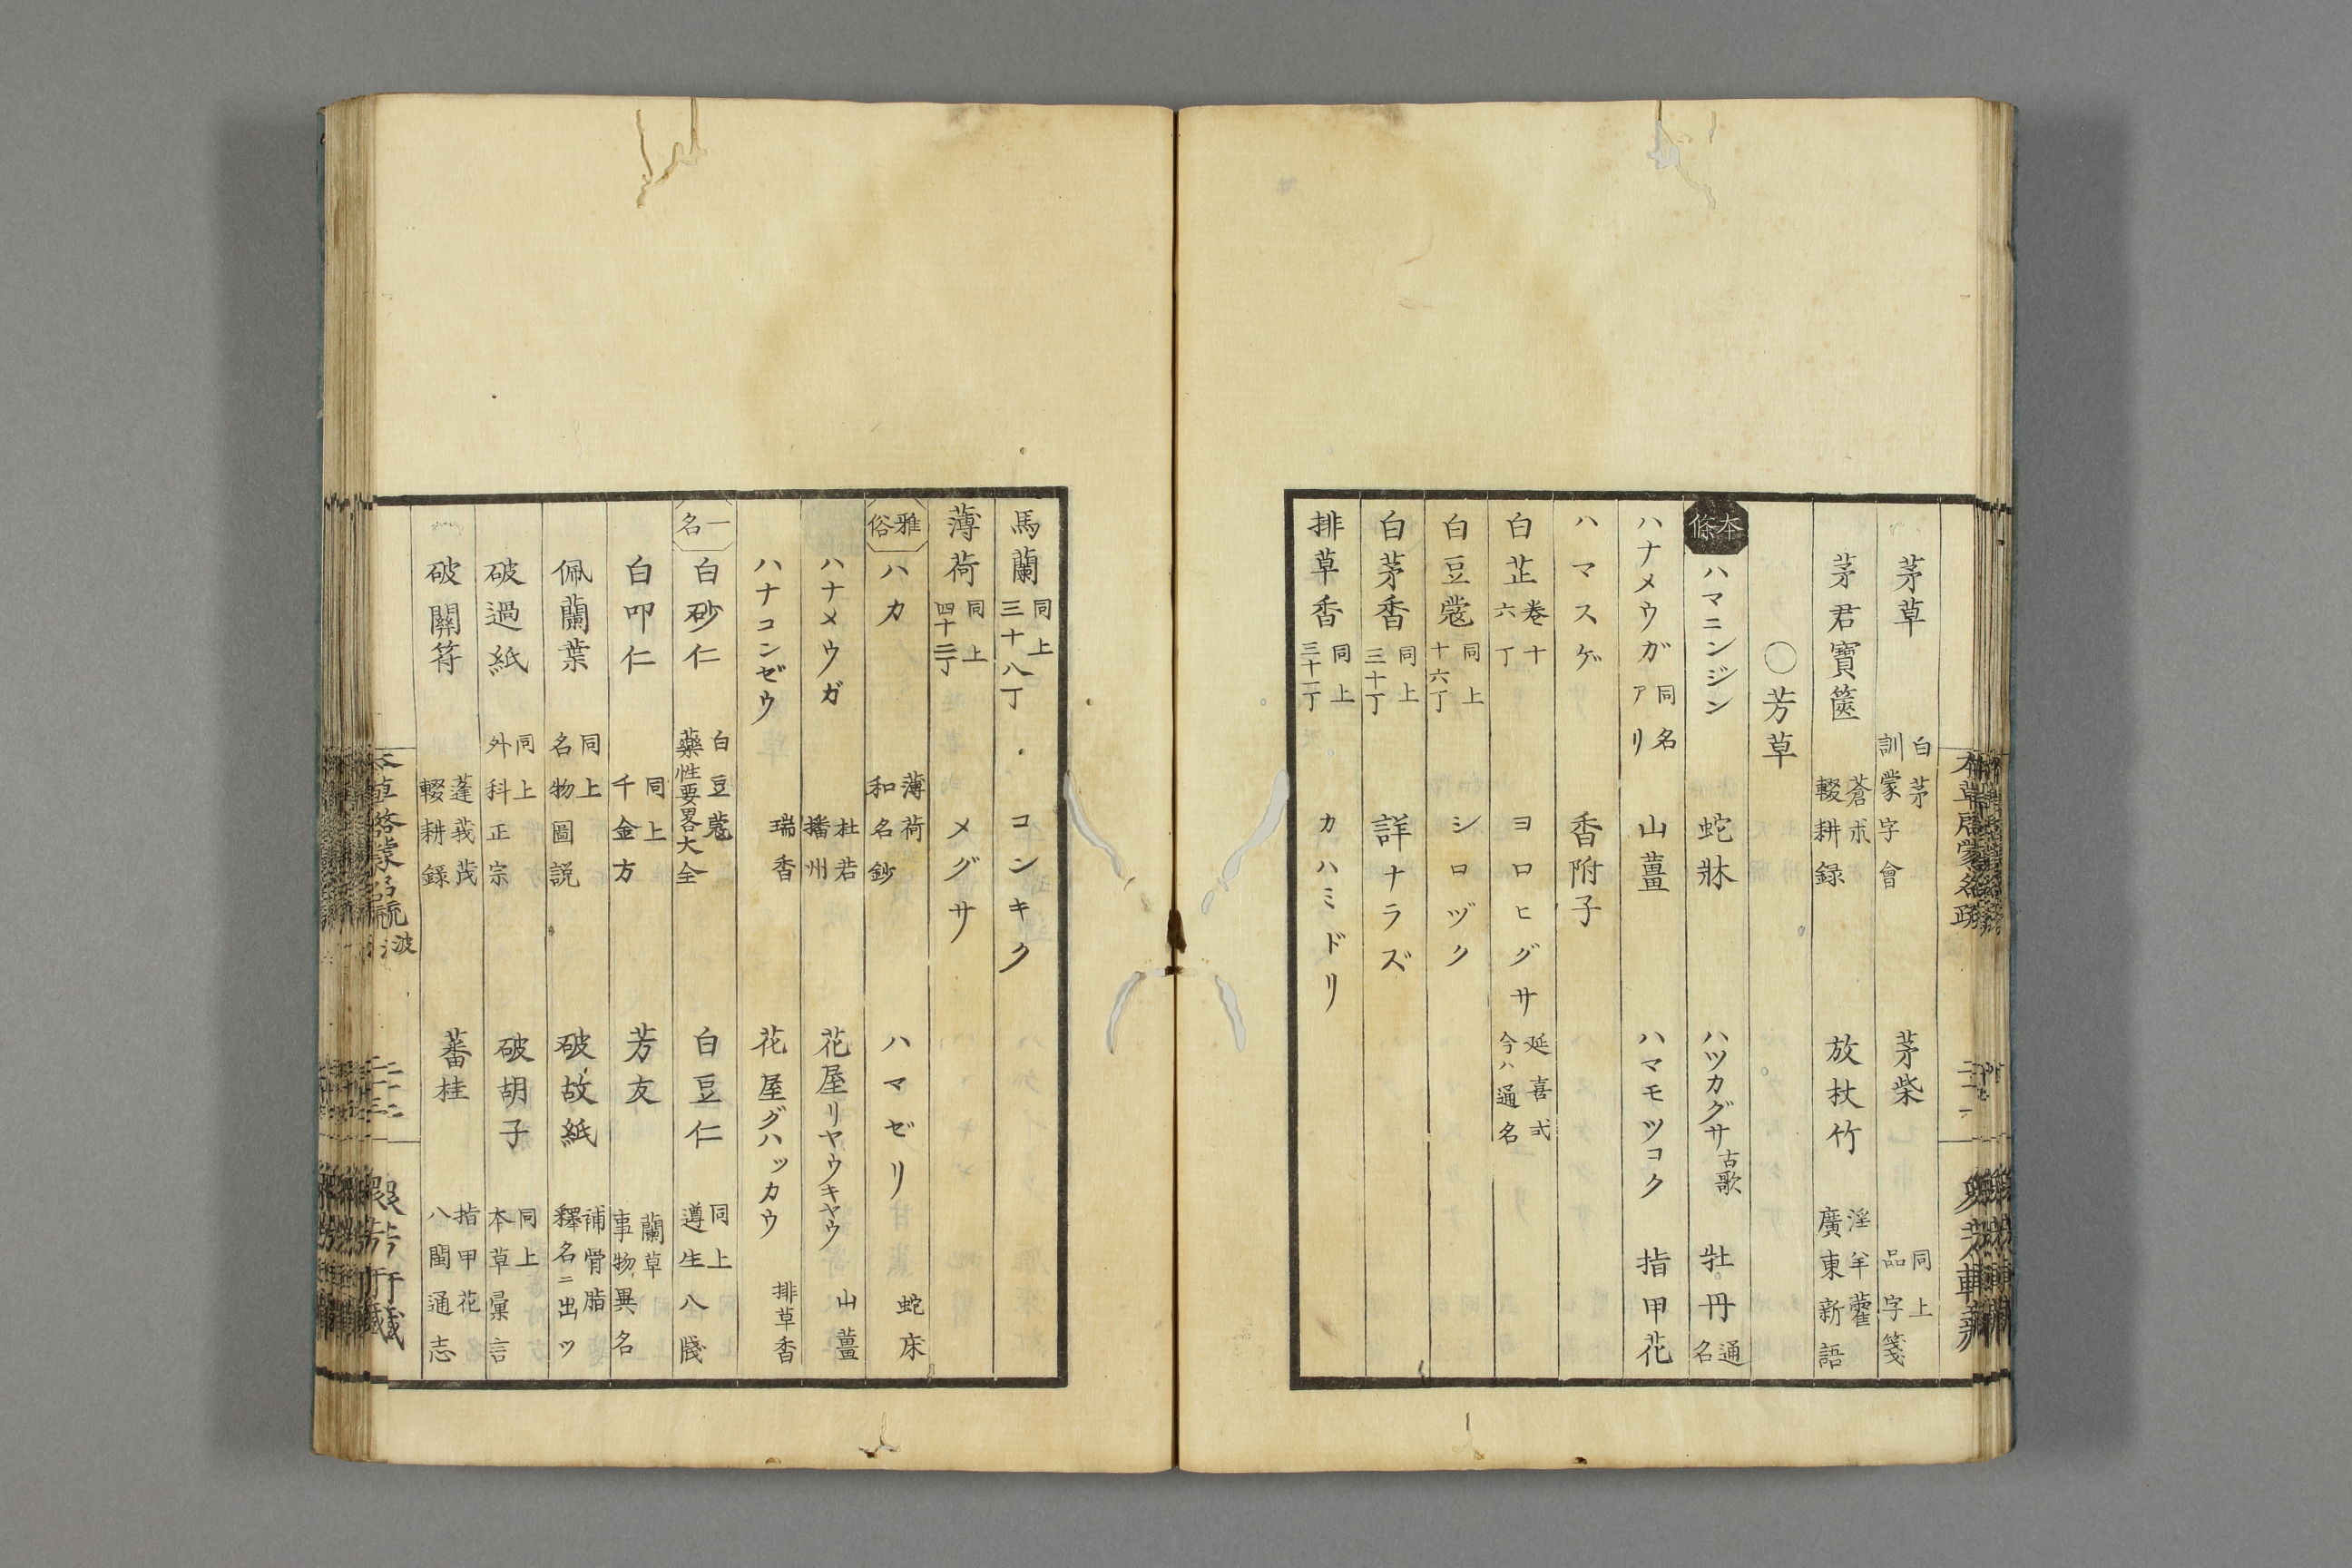 茅草 白茅 訓蒙字會 茅柴 同上 品字箋
茅君寶篋 蒼朮 輟耕録 放杖竹 淫羊藿 廣東新語
〇芳草
本條 ハマニンジン 蛇牀 ハツカグサ 古歌 牡丹 通名
ハナメウガ 同名アリ 山薑 ハマモツコク 指甲花
ハマスゲ 香附子
白芷 卷十 六丁 ヨロヒグサ 延喜式 今ハ通名
白豆蔻 同上 十六丁 シロヅク
白茅香 同上 三十丁 詳ナラズ
排草香 同上 三十一丁 カハミドリ
馬蘭 同上 三十八丁 コンキク
薄荷 同上 四十三丁 メグサ
雅俗 ハカ 薄荷 和名鈔 ハマゼリ 蛇床
ハナメウガ 杜若 播州 花屋リヤウキヤウ 山薑
ハナコンゼウ 瑞香 花屋グハッカウ 排草香
一名 白砂仁 白豆蔻 藥性要畧大全 白豆仁 同上 遵生八牋
白叩仁 同上 千金方 芳友 蘭草 事物異名
佩蘭葉 同上 名物圖説 破故紙 補骨脂 釋名ニ出ツ
破過紙 同上 外科正宗 破胡子 同上 本草彙言
破關符 蓬莪茂 輟耕録 蕃桂 指甲花 八閩通志